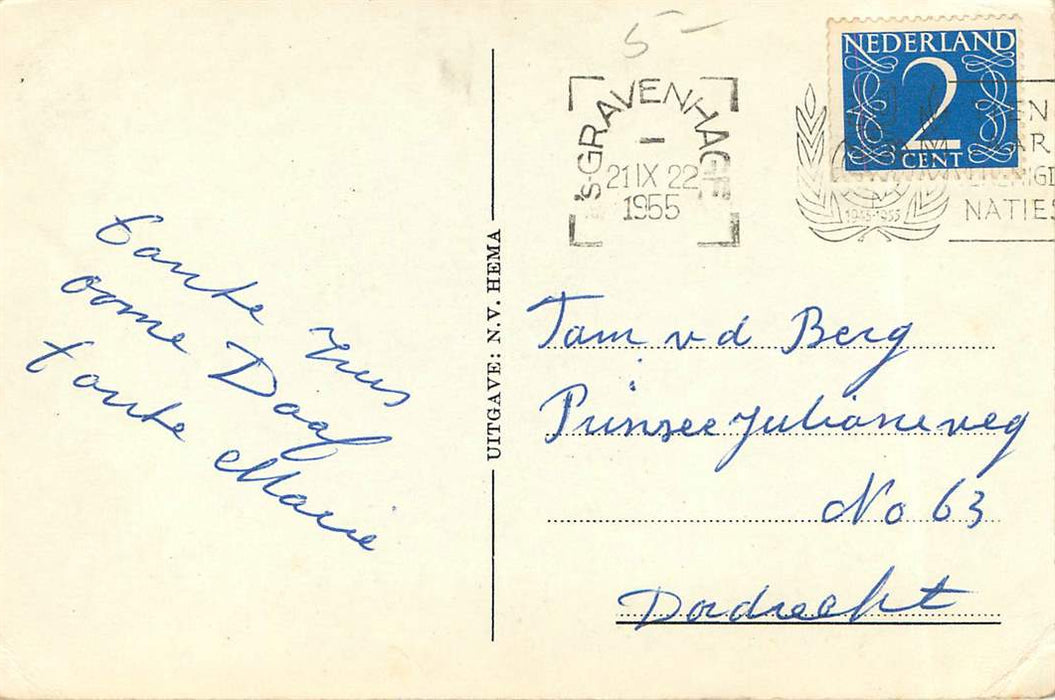 5-
NEDERLAND
2
CENT
's-GRAVENHAGE
21 IX 22
1955
1945-1955
NATIES
tante Truus
oome Daaf
tante Marie
UITGAVE: N.V. HEMA
Tam v d Berg
Prinses Julianaweg
No 63
Dordrecht